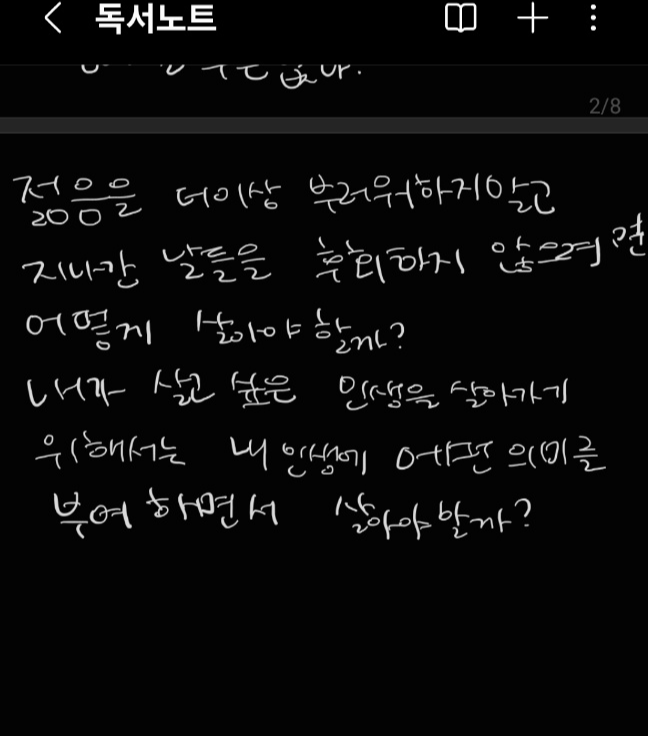 독서노트
2/8
젊음을 더이상 부러워하지않고
지나간 날들을 후회하지 않으려면
어떻게 살아야 할까?
내가 살고 싶은 인생을 살아가기
위해서는 내 인생에 어떤 의미를
부여하면서 살아야할까?